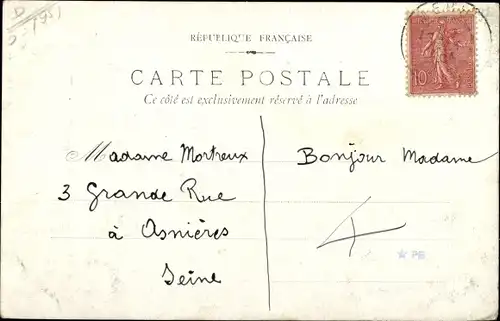 RÉPUBLIQUE FRANÇAISE
CARTE POSTALE
Ce côté est exclusivement réservé à l'adresse
Madame Mortreux
3 Grande Rue
à Asnières
Seine
Bonjour Madame
10
★ PB